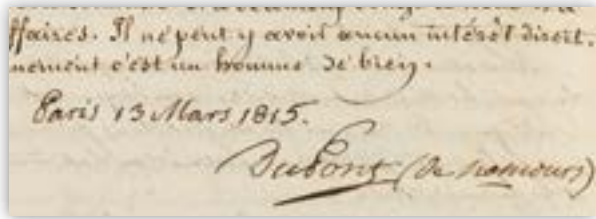 ffaires. Il ne peut y avoir aucun intérêt direct.
nement c'est un homme de bien.
Paris 13 Mars 1815.
DuPont (de nemours)